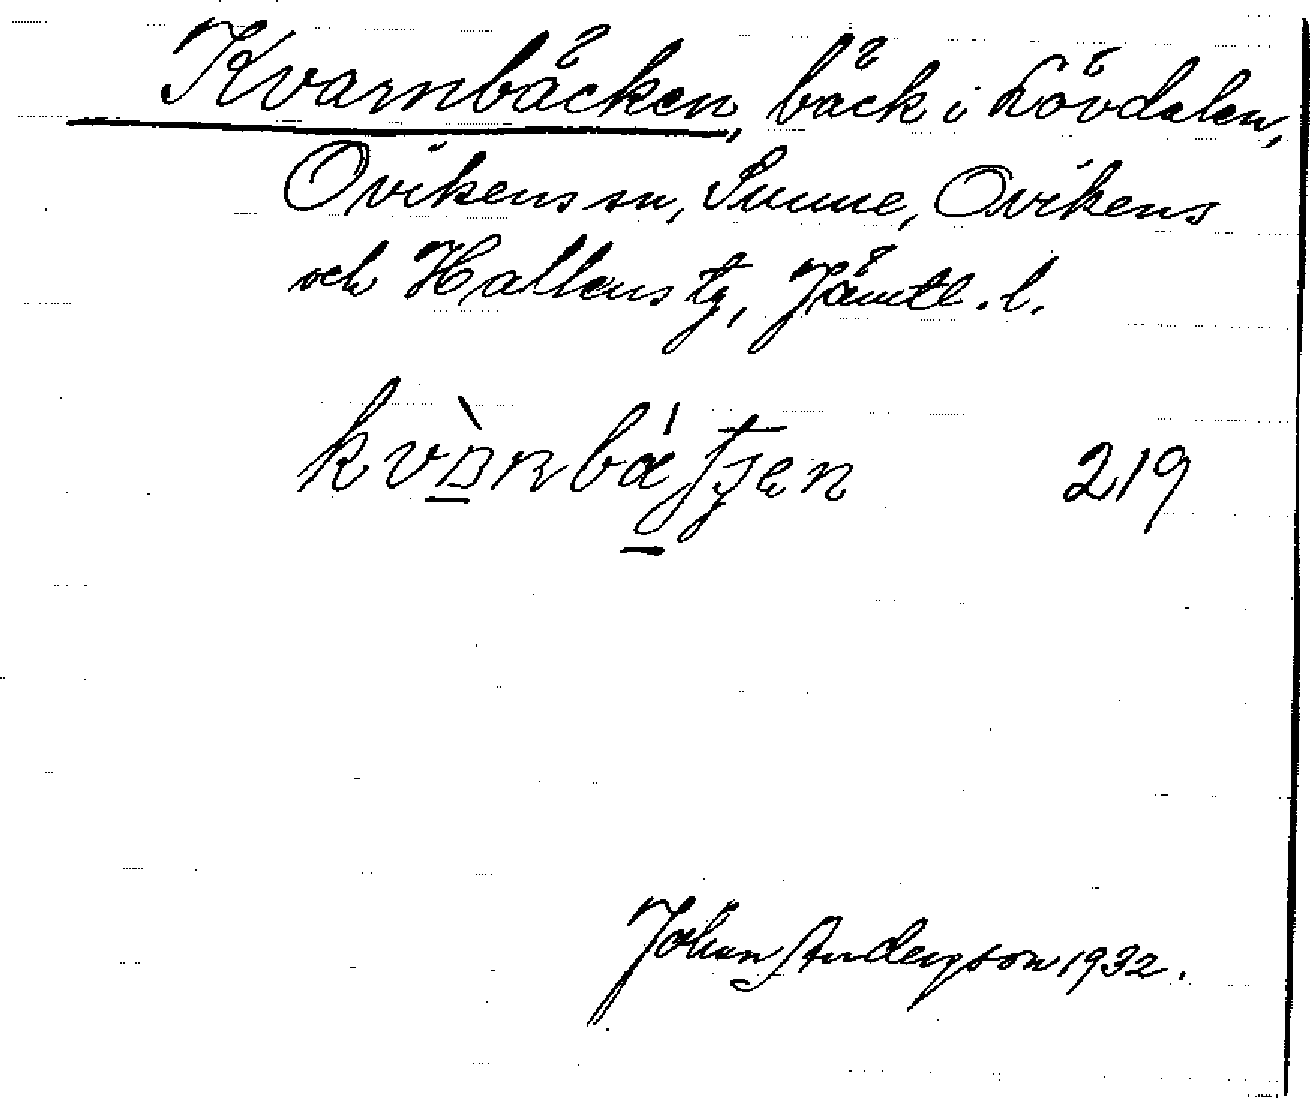 Kvarnbäcken, bäck i Lövdalen,
Ovikens sn, Sunne, Ovikens
och Hallens tg, Jämtl. l.
219
Johan Andersson 1932.